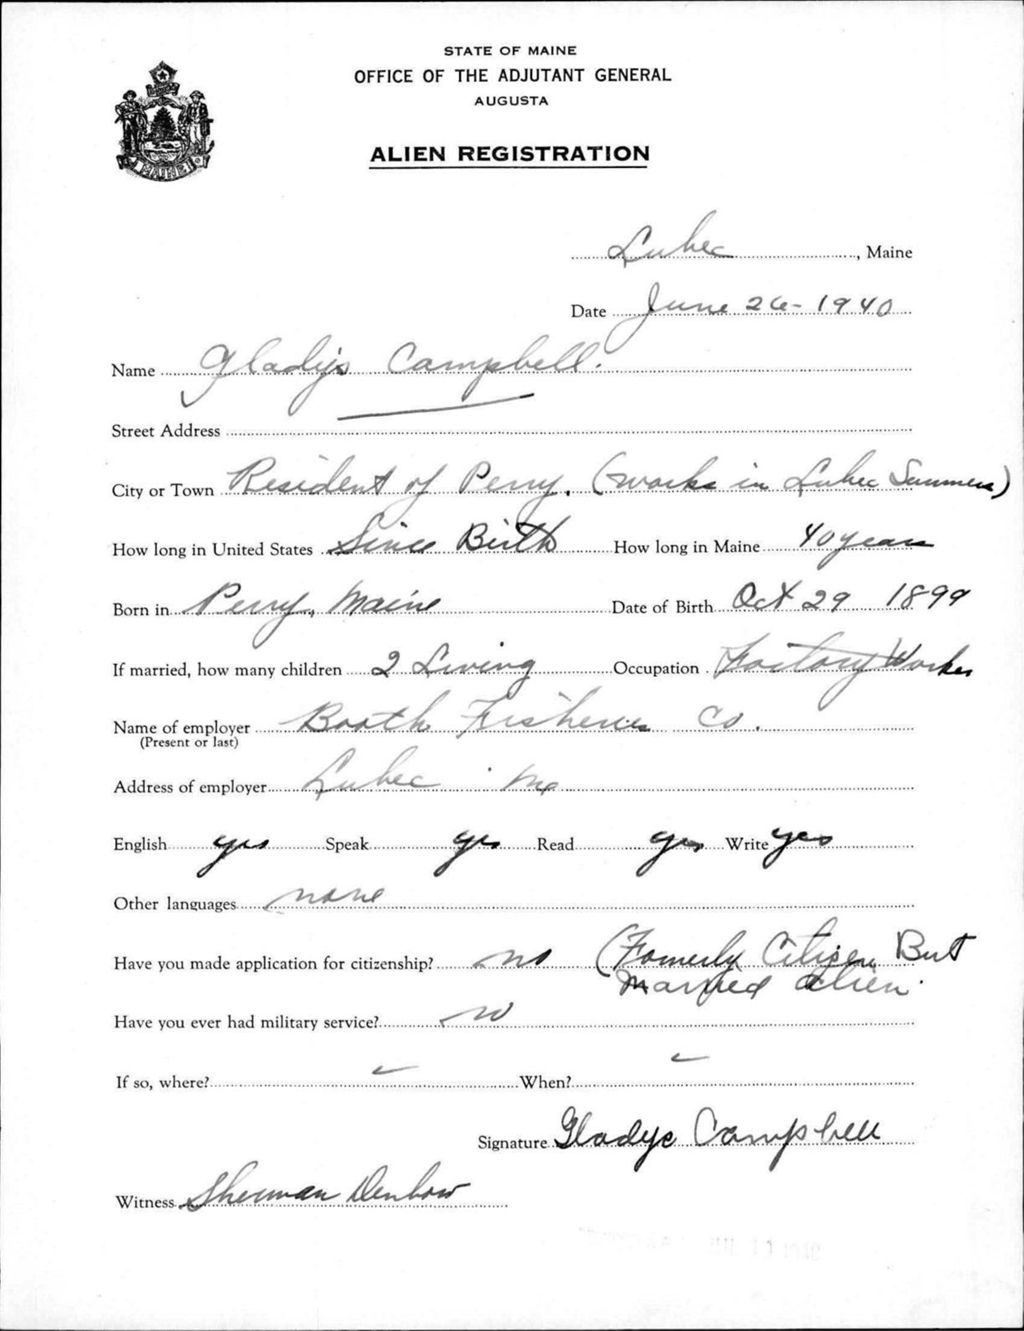 STATE OF MAINE
OFFICE OF THE ADJUTANT GENERAL
AUGUSTA
ALIEN REGISTRATION
MAINE
Lubec, Maine
Date June 26-1940
Name Gladys Campbell.
Street Address
City or Town Resident of Perry. (works in Lubec Summers)
How long in United States Since Birth How long in Maine 40 years
Born in Perry, Maine Date of Birth Oct 29 1899
If married, how many children 2 Living Occupation Factory Worker
Name of employer Booth Fisheries Co.
(Present or last)
Address of employer Lubec Me
English yes Speak yes Read yes Write yes
Other languages none
Have you made application for citizenship? no (Formerly Citizen But
Married Alien.
Have you ever had military service? no
If so, where? - When? -
Signature Gladys Campbell
Witness Sherman Denbow